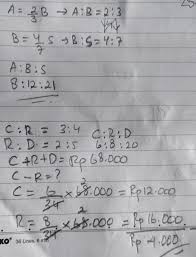 A = 2/3 B → A:B = 2:3
B = 4/7 S → B:S = 4:7
A:B:S
8:12:21
C:R = 3:4 C:R:D
R:D = 2:5 6:8:20
C+R+D = Rp 68.000
C-R = ?
C = 6/34 × 68.000 = Rp 12.000
2
R = 8/34 × 68.000 = Rp 16.000
Rp 4.000
KO 36 Lines, 6 mm